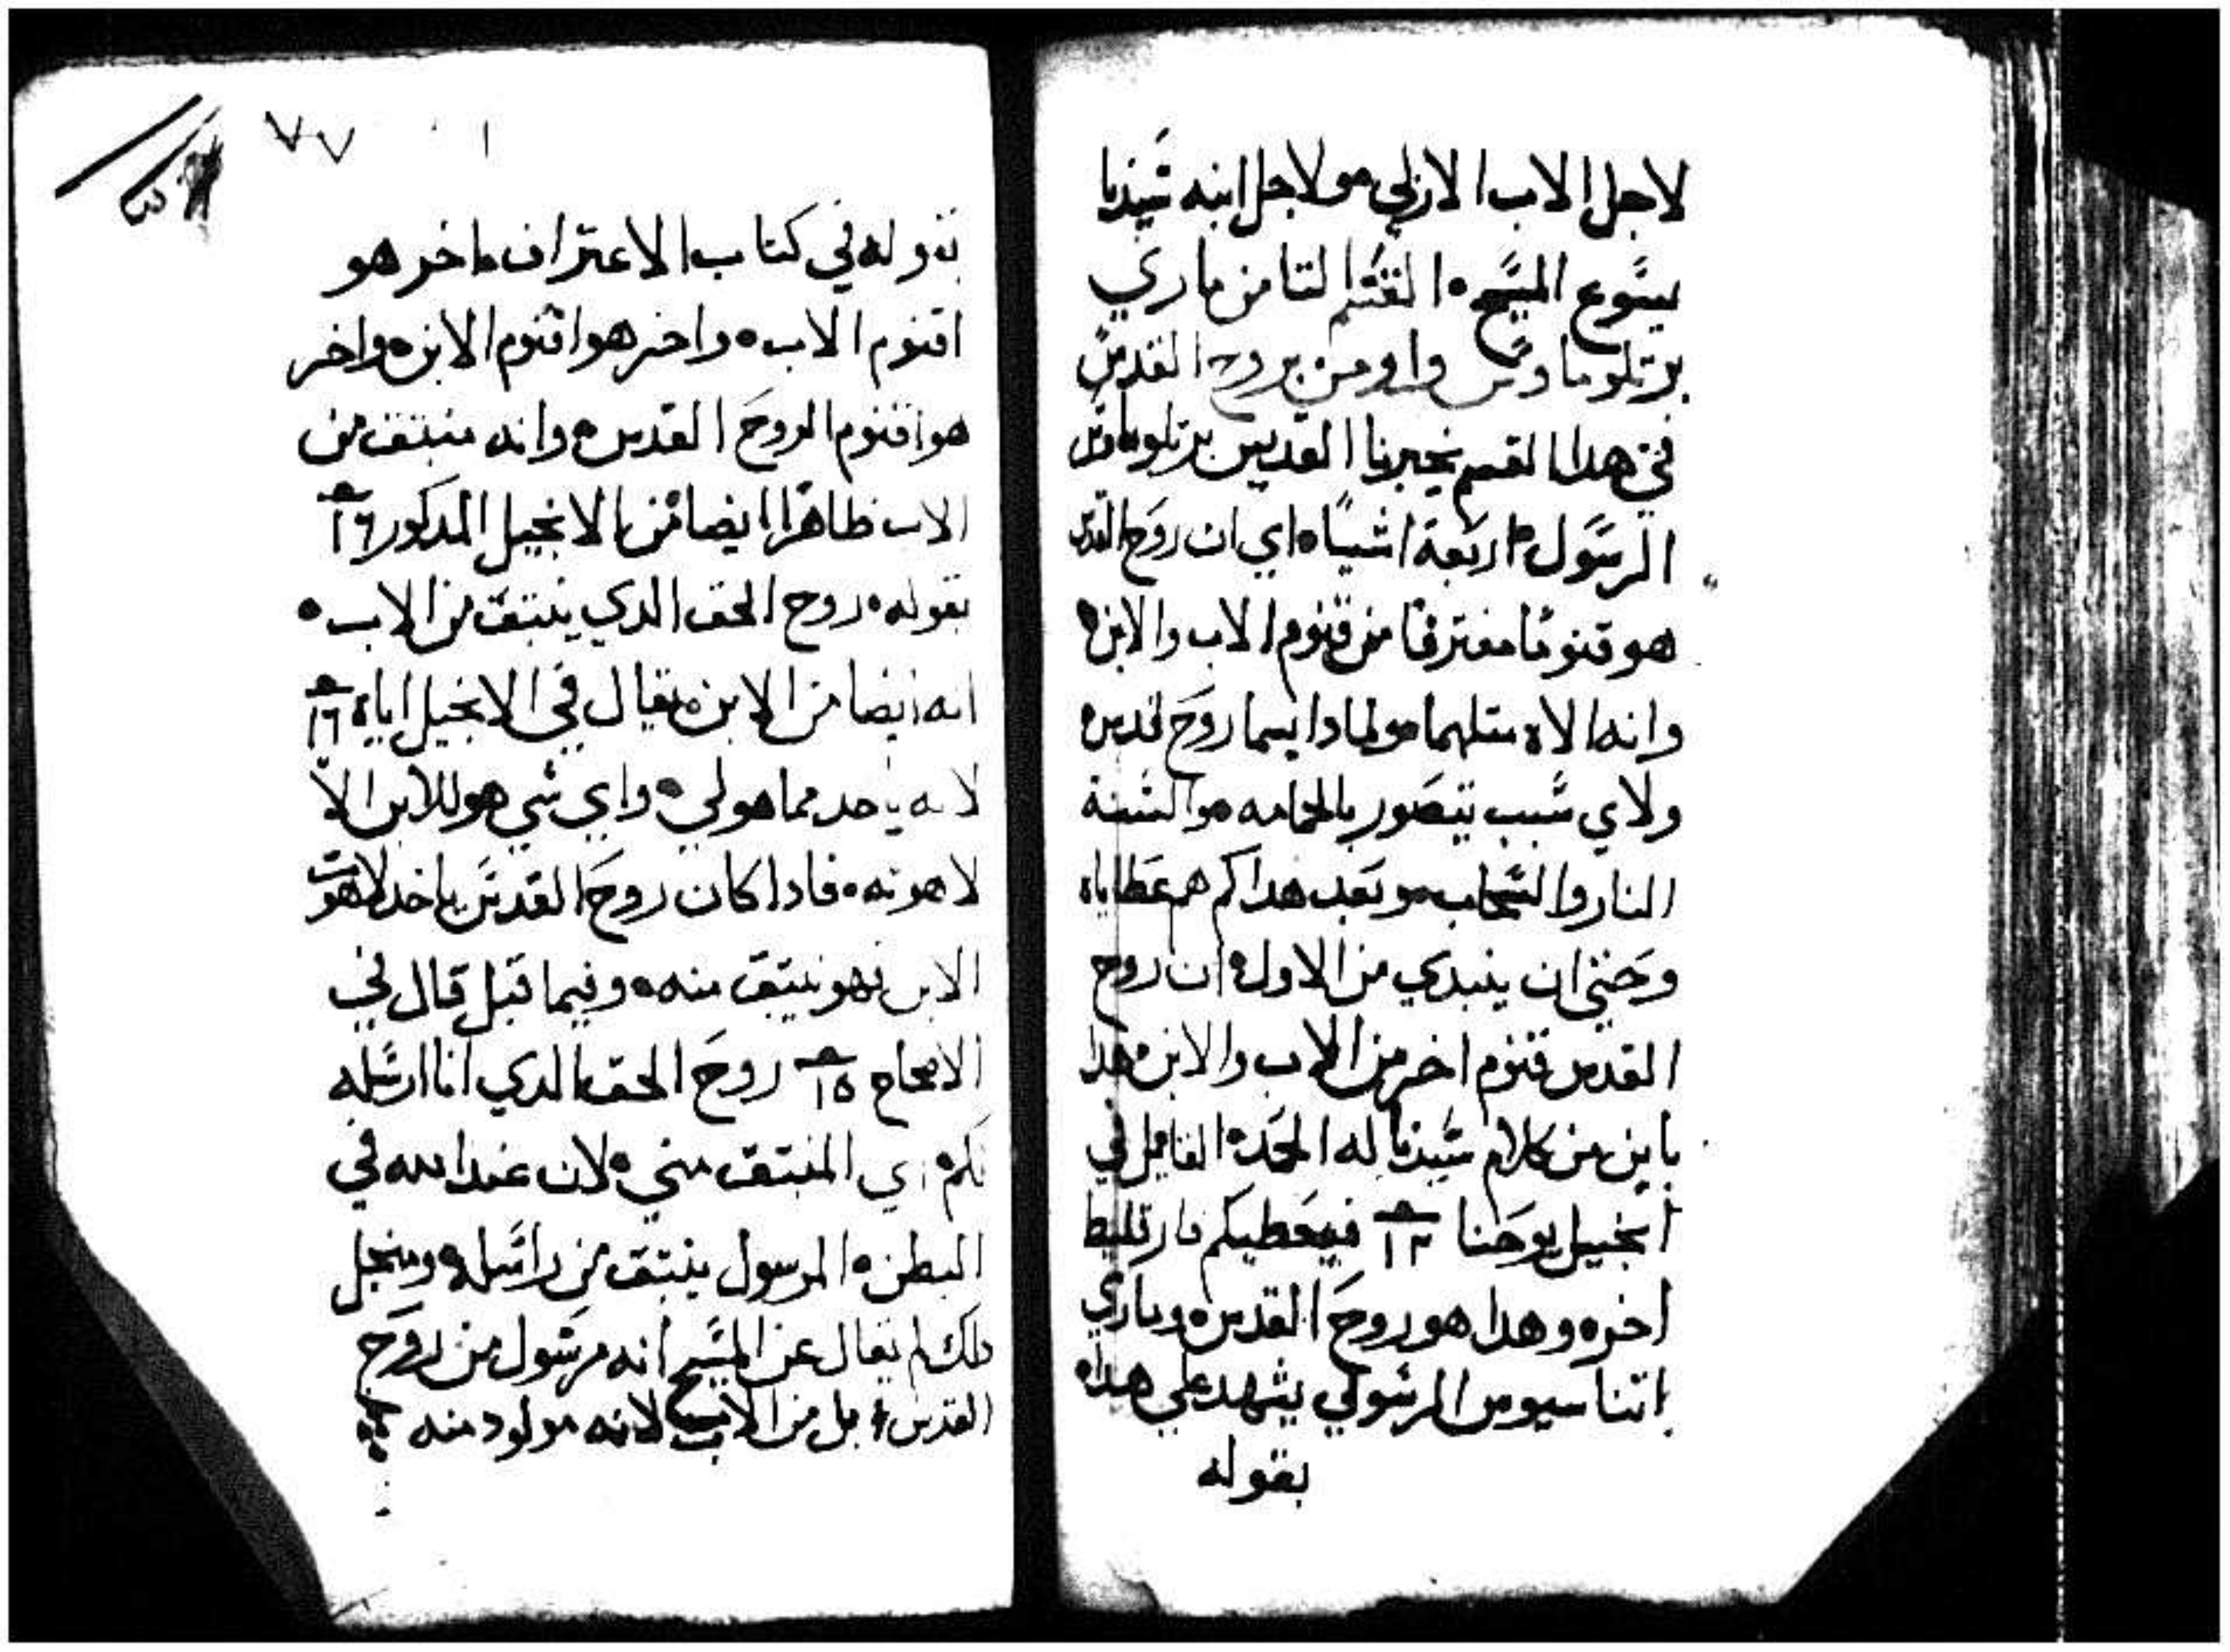 لاجل الاب الازلي ولاجل ابنه سيدنا
يسوع المسيح ه القسم التامن ماري
برتلوماوس واومن بروح القدس
في هدا القسم يخبرنا القديس برتلوماوس
الرسول ه اربعة اشيا ه اي ان روح القدس
هو قنوما مفترقا من قنوم الاب والابن ه
وانه الاه متلهما ولمادا يسما روح قدس ه
ولاي سبب يتصور بالحمامه والسنة
النار والسحاب وبعد هدا كم هم عطاياه
وحتي ان ينبدي من الاول ه ان روح
القدس قنوم اخر من الاب والابن ه هدا
باين من كلام سيدنا له المجد ه القايل في
انجيل يوحنا ١٤ فيعطيكم فارقليط
اخر ه وهدا هو روح القدس ه وماري
اتناسيوس الرسولي يشهد علي هدا ه
بقوله
٧٧
بقوله في كتاب الاعتراف اخر هو
اقنوم الاب ه واخر هو اقنوم الابن ه واخر
هو اقنوم الروح القدس ه وانه منبتق من
الاب ظاهرا ايضا من الانجيل المدكور ١٦
بقوله ه روح الحق الدي ينبتق من الاب ه
انه ايضا من الابن ه يقال في الانجيل اياه ١٦
لانه ياخد مما هو لي ه واي شي هو للابن الا
لاهوته ه فادا كان روح القدس ياخد لاهوت
الابن فهو ينبتق منه ه وفيما قبل قال في
الاصحاح ١٥ روح الحق الدي انا ارسله
لكم ه اي المنبتق مني ه لان عند الله في
البطن ه المرسول ينبتق من راسله ه ومنجل
دلك لم يقال عن المسيح انه مرسول من روح
القدس ه بل من الاب لانه مولود منه